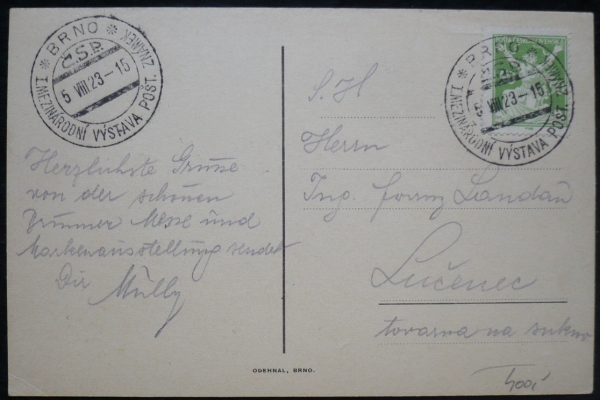 * BRNO *
Č.S.P.
5 VIII 23-15
I. MEZINÁRODNÍ VÝSTAVA POŠT. ZNÁMEK
Herzlichste Grüsse
von der schönen
Brünner Messe und
Markenausstellung sendet
Dir Mully
* BRNO
5 VIII 23-15
I. MEZINÁRODNÍ VÝSTAVA POŠT. ZNÁMEK
S. H
Herrn
Ing. Landau
Lučenec
tovarna na sukno
ODEHNAL, BRNO.